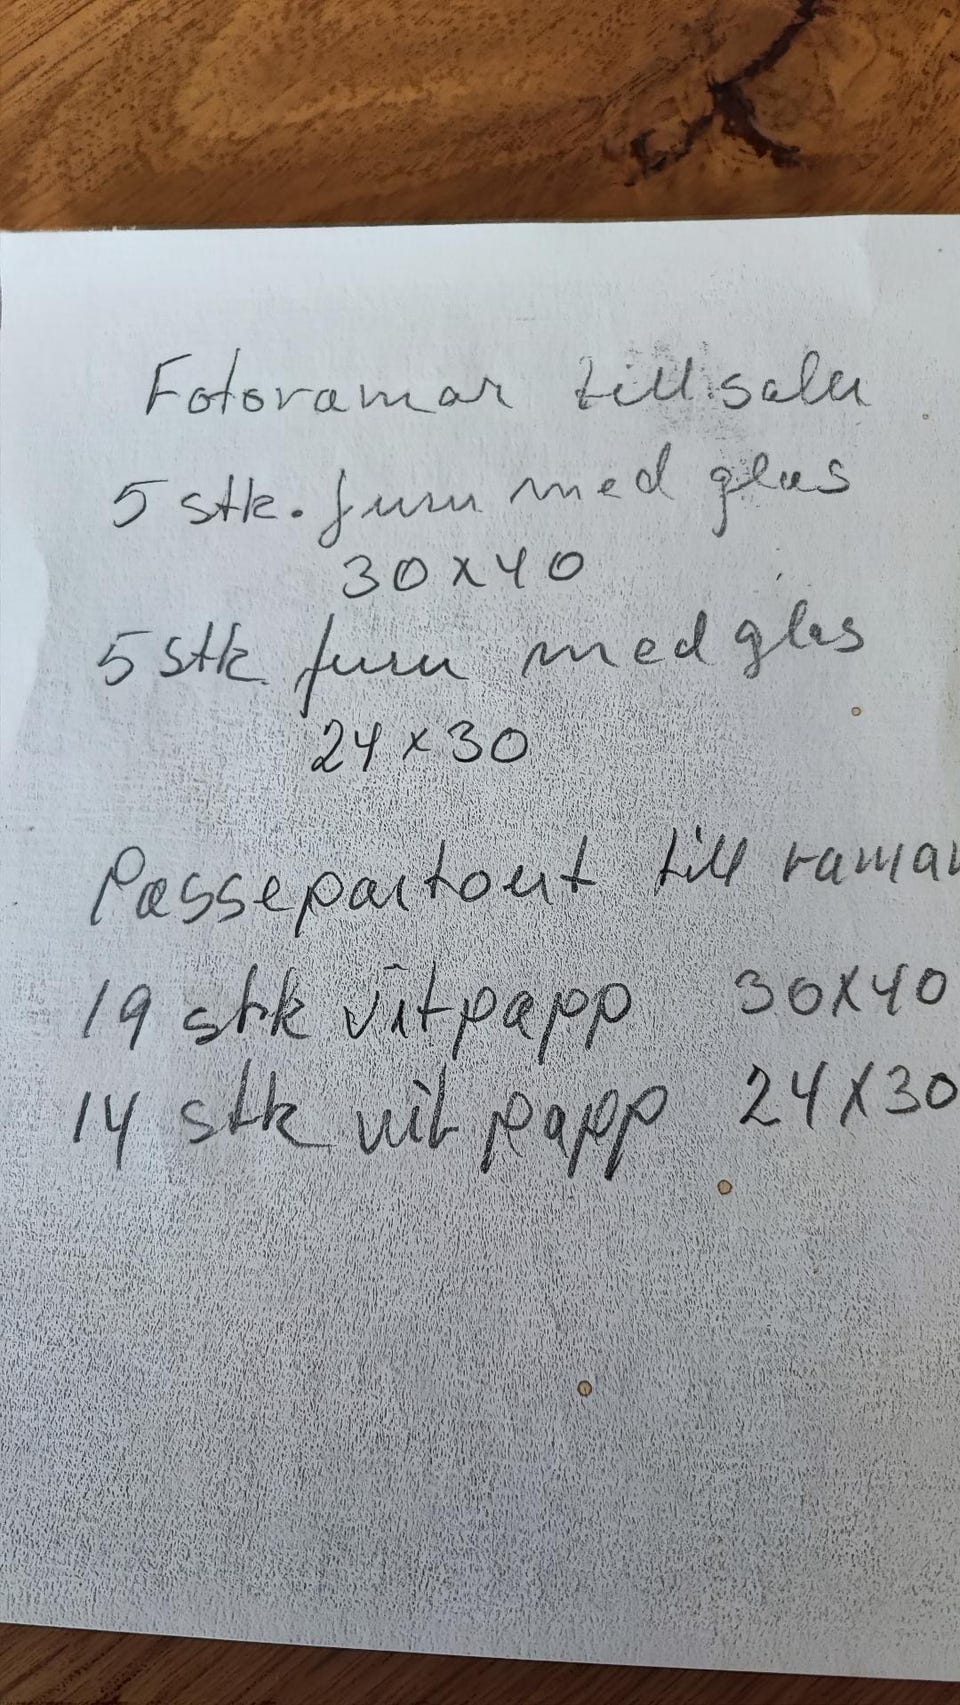 Fotoramar till salu
5 stk. furu med glas
30x40
5 stk furu med glas
24x30
Passepartout till ramar
19 stk vitpapp 30x40
14 stk vit papp 24x30